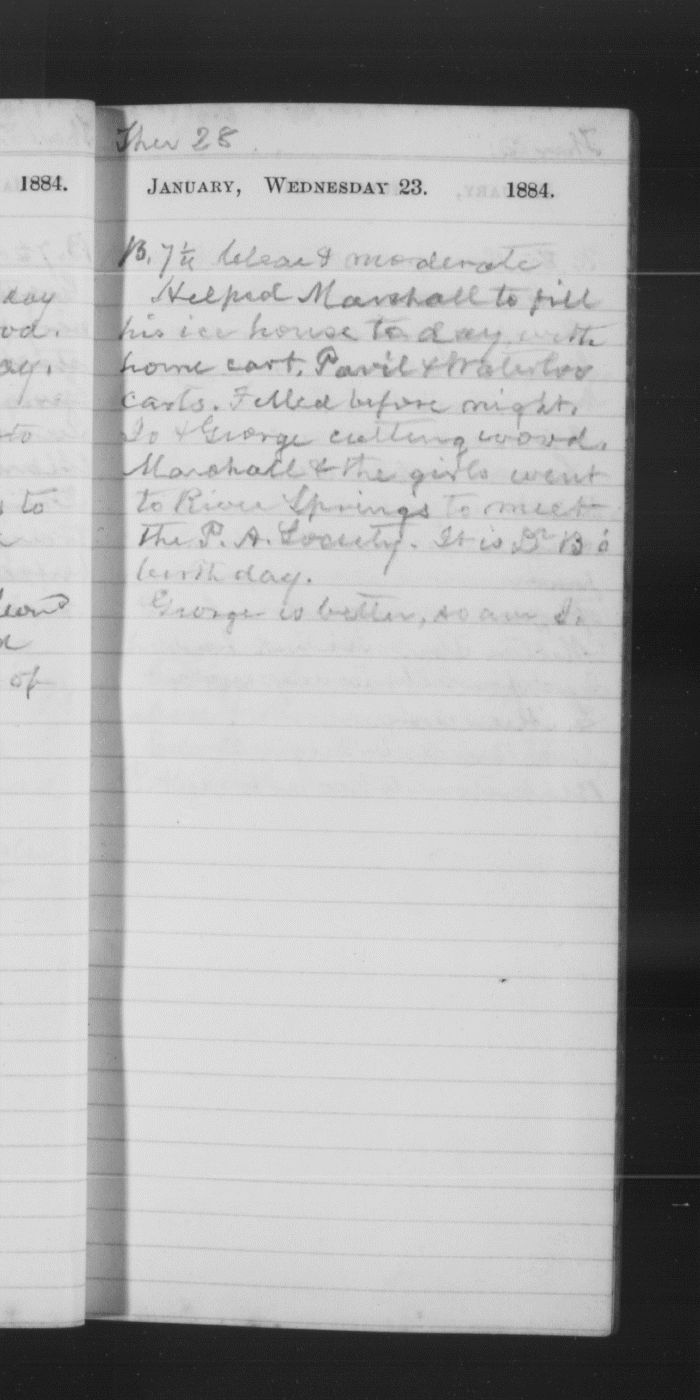 Ther 28
1884.
January, Wednesday 23. 1884.
B. 7¼ Clear & moderate
Helped Marshall to fill
his ice house to day with
home cart, Pavil & Waterloo
carts. Filled before night.
Jo & George cutting wood.
Marshall & the girls went
to River Springs to meet
the P. A. Society. It is Dr B's
birth day.
George is better, so am I.
day
od.
ay.
to
to
of